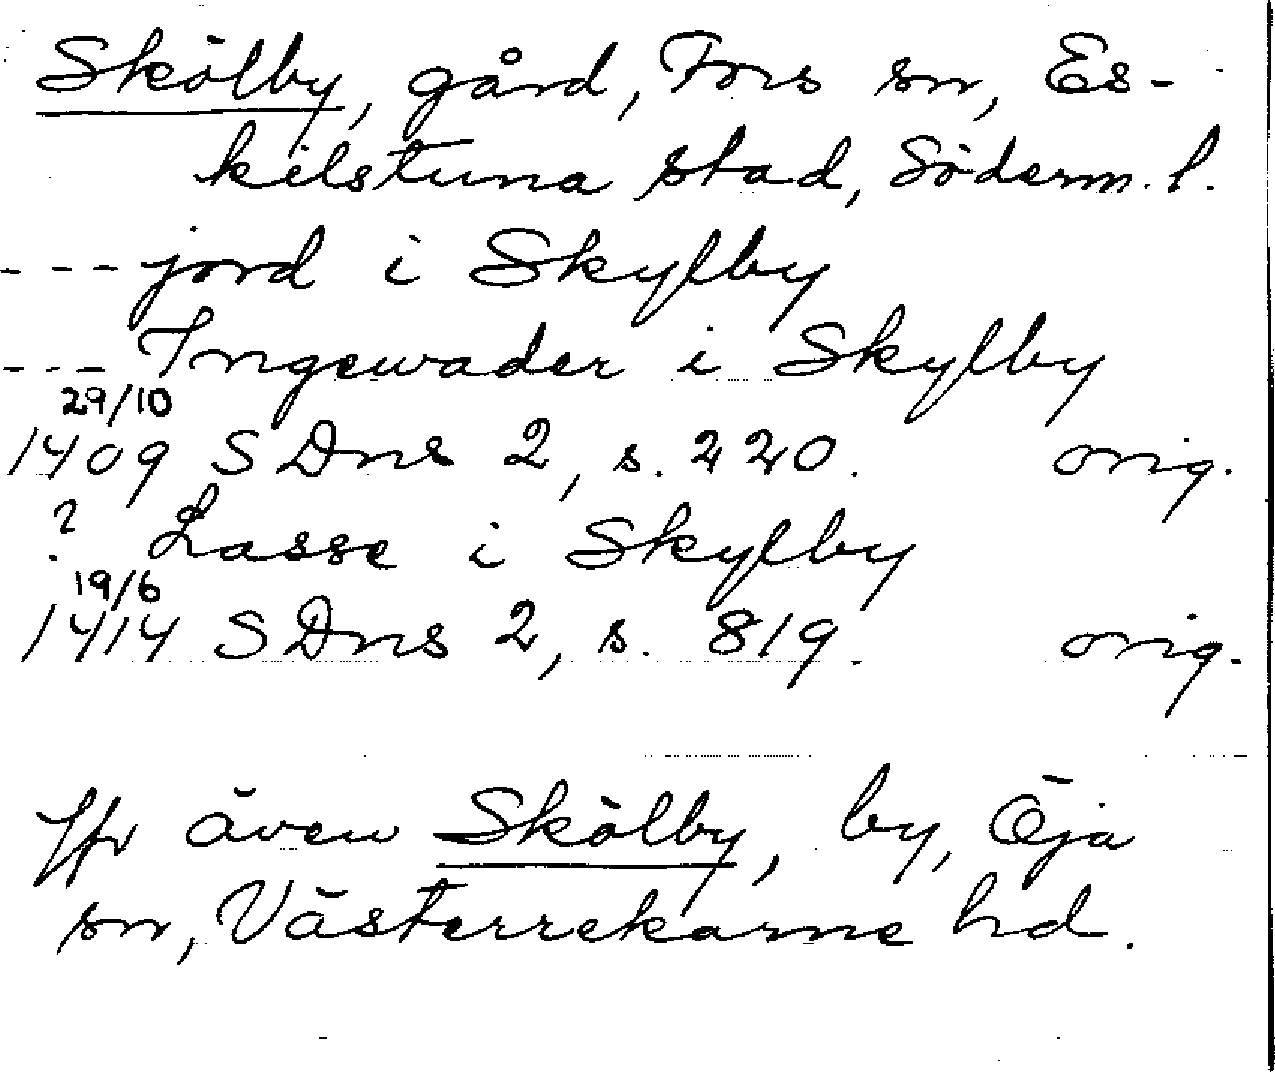 Skölby, gård, Fors sn, Es-
kilstuna stad, Söderm. l.
--- jord i Skylby
--- Ingewader i Skylby
29/10
1409 SDns 2, s. 220. orig.
? Lasse i Skylby
19/6
1414 SDns 2, s. 819. orig.
Jfr även Skölby, by, Öja
sn, Västerrekarne hd.